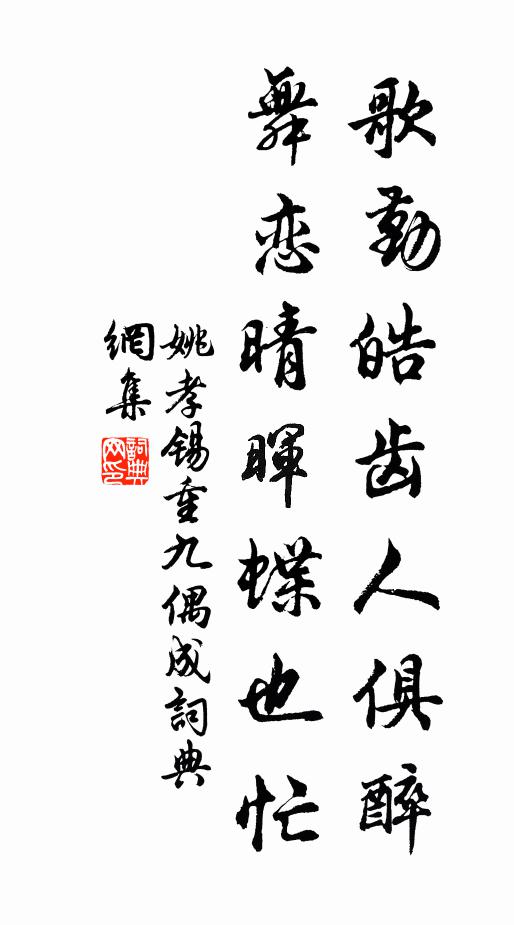 歌勤皓齿人俱醉
舞恋晴暉蝶也忙
姚孝锡重九偶成詞典
網集
詞典
网印